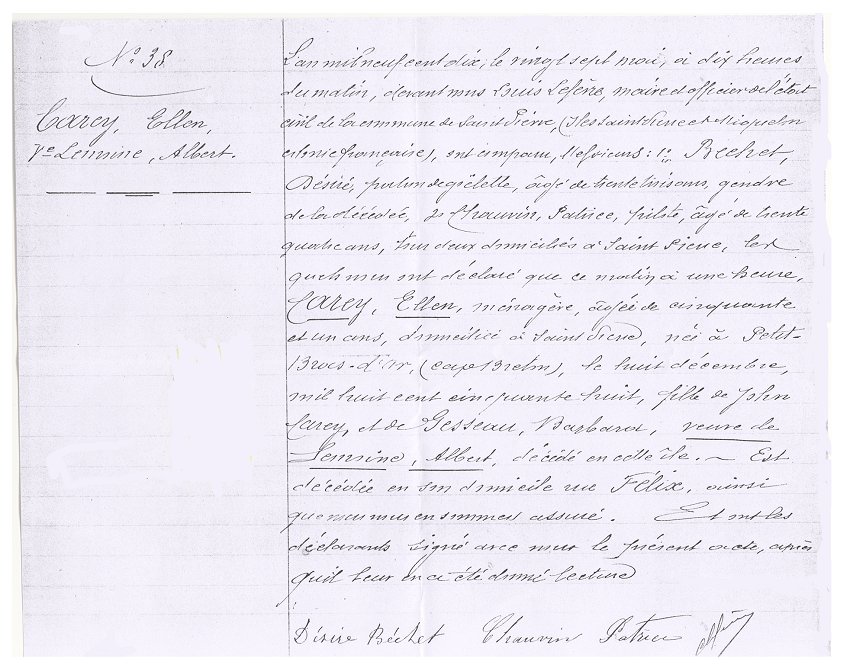 Nº 38
Carey, Ellen,
Vᵉ Lemoine, Albert.
L'an mil neuf cent dix, le vingt sept mai, à dix heures
du matin, devant nous Louis Lefèvre, maire et officier de l'état
civil de la commune de Saint Pierre, (Iles Saint Pierre et Miquelon
colonie française), ont comparu, Messieurs: 1º Bechet,
Désiré, patron de goëlette, âgé de trente trois ans, gendre
de la décédée, 2º Chauvin, Patrice, pilote, âgé de trente
quatre ans, tous deux domiciliés à Saint Pierre, les
quels nous ont déclaré que ce matin à une heure,
Carey, Ellen, ménagère, âgée de cinquante
et un ans, domiciliée à Saint Pierre, née à Petit-
Bras-d'Or, (cap Breton), le huit décembre,
mil huit cent cinquante huit, fille de John
Carey, et de Gesseau, Barbara, veuve de
Lemoine, Albert, décédé en cette île. ~ Est
décédée en son domicile rue Félix, ainsi
que nous nous en sommes assuré. Et ont les
déclarants signé avec nous le présent acte, après
qu'il leur en a été donné lecture
Désire Béchet Chauvin Patrice